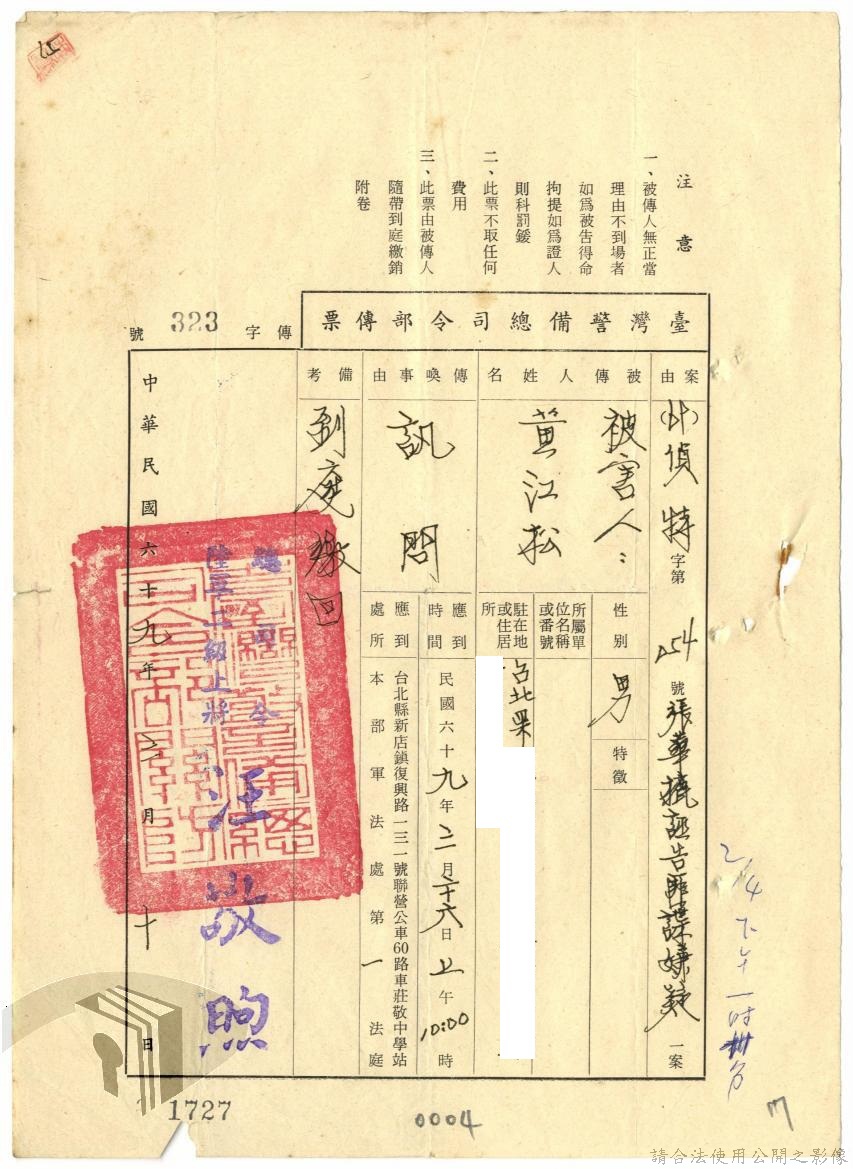 注意
一、被傳人無正當
理由不到場者
如爲被告得命
拘提如爲證人
則科罰鍰
二、此票不取任何
費用
三、此票由被傳人
隨帶到庭繳銷
附卷
臺灣警備總司令部傳票
傳字
323
號
案由
偵特字第254號張華摝誣告匪諜嫌疑一案
被傳人姓名
被害人：
黃江松
性別
男
特徵
所屬單
位名稱
或番號
駐在地
或住居
所
台北縣
傳喚事由
訊問
應到
時間
民國六十九年二月廿六日上午10:00時
應到
處所
台北縣新店鎮復興路一三一號聯營公車60路車莊敬中學站
本部軍法處第一法庭
備考
到庭繳回
總司令
陸軍二級上將
汪敬煦
中華民國六十九年二月十日
2/4下午一時卅分
1727
0004
請合法使用公開之影像